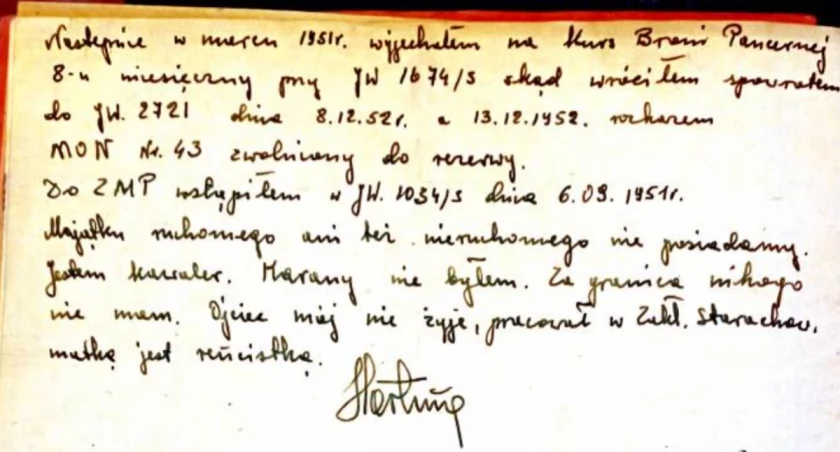 Następnie w marcu 1951r. wyjechałem na kurs Broni Pancernej
8-u miesięczny przy JW 1674/S skąd wróciłem spowrotem
do JW. 2721 dnia 8.12.52r. a 13.12.1952. rozkazem
MON Nr. 43 zwolniony do rezerwy.
Do ZMP wstąpiłem w JW. 1034/S dnia 6.09.1951r.
Majątku ruchomego ani też nieruchomego nie posiadamy.
Jestem kawaler. Karany nie byłem. Za granicą nikogo
nie mam. Ojciec mój nie żyje, pracował w Zakł. Starachow.
matka jest rencistką.
Hartung